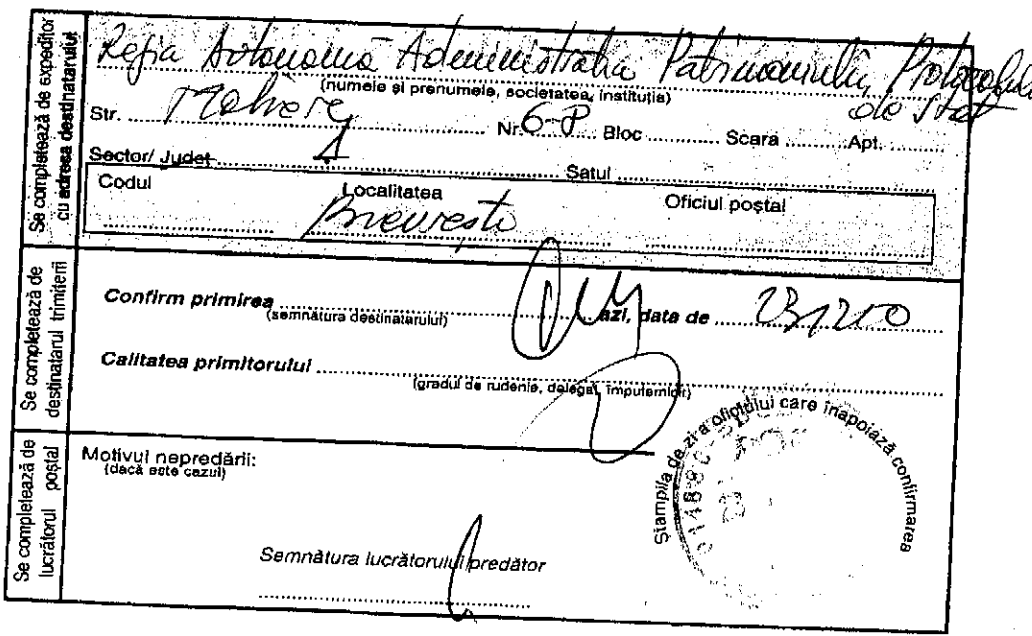 Se completează de expeditor
cu adresa destinatarului
Regia Autonomă Administrația Patrimoniului Protocolului
de Stat
(numele și prenumele, societatea, instituția)
Str. Nr. 6-8 Bloc Scara Apt.
Sector/ Județ 1 Satul
Codul Localitatea Oficiul poștal
București
Se completează de
destinatarul trimiterii
Confirm primirea azi, data de
(semnătura destinatarului)
Calitatea primitorului
(gradul de rudenie, delegat, împuternicit)
Se completează de
lucrătorul poștal
Motivul nepredării:
(dacă este cazul)
Semnătura lucrătorului predător
Ștampila de zi a oficiului care înapoiază confirmarea